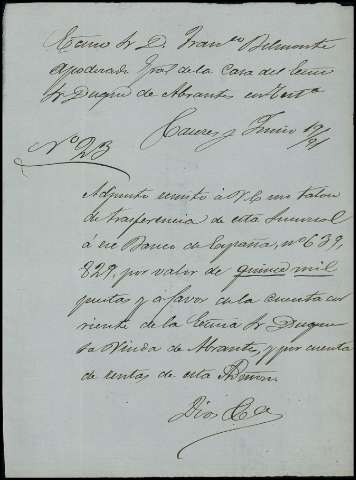 Excmo Sr D. Franco Belmonte
Apoderado Gral de la Casa del Excmo
Sr Duque de Abrantes en Esta
Caceres y Junio 19/91
No 23
Adjunto remito á V E un talon
de trasferencia de esta Sucursal
á ese Banco de España, no 639,
829, por valor de quince mil
pesetas y a favor de la cuenta cor
riente de la Excma Sra Duque
sa Viuda de Abrantes, y por cuenta
de rentas de esta Admon.
Dios Ga